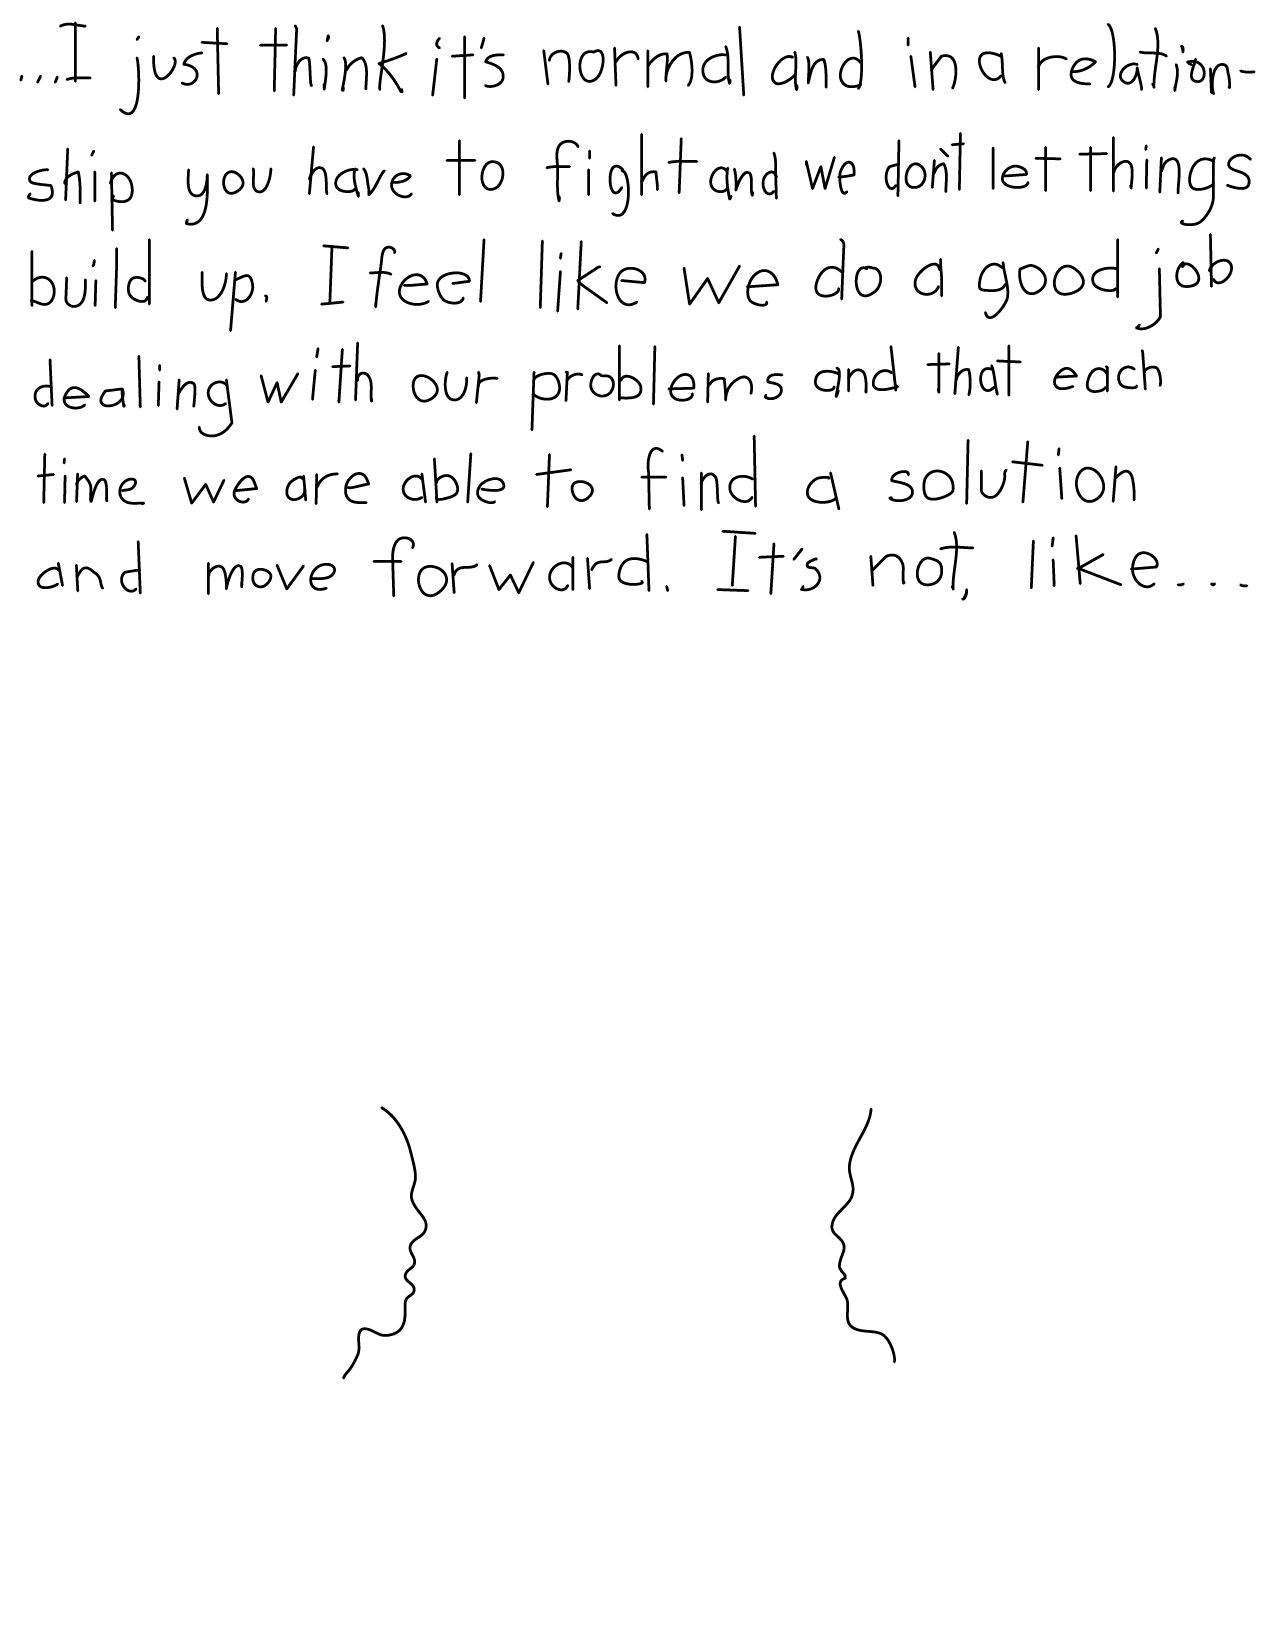 ...I just think it's normal and in a relation-
ship you have to fight and we don't let things
build up. I feel like we do a good job
dealing with our problems and that each
time we are able to find a solution
and move forward. It's not, like...